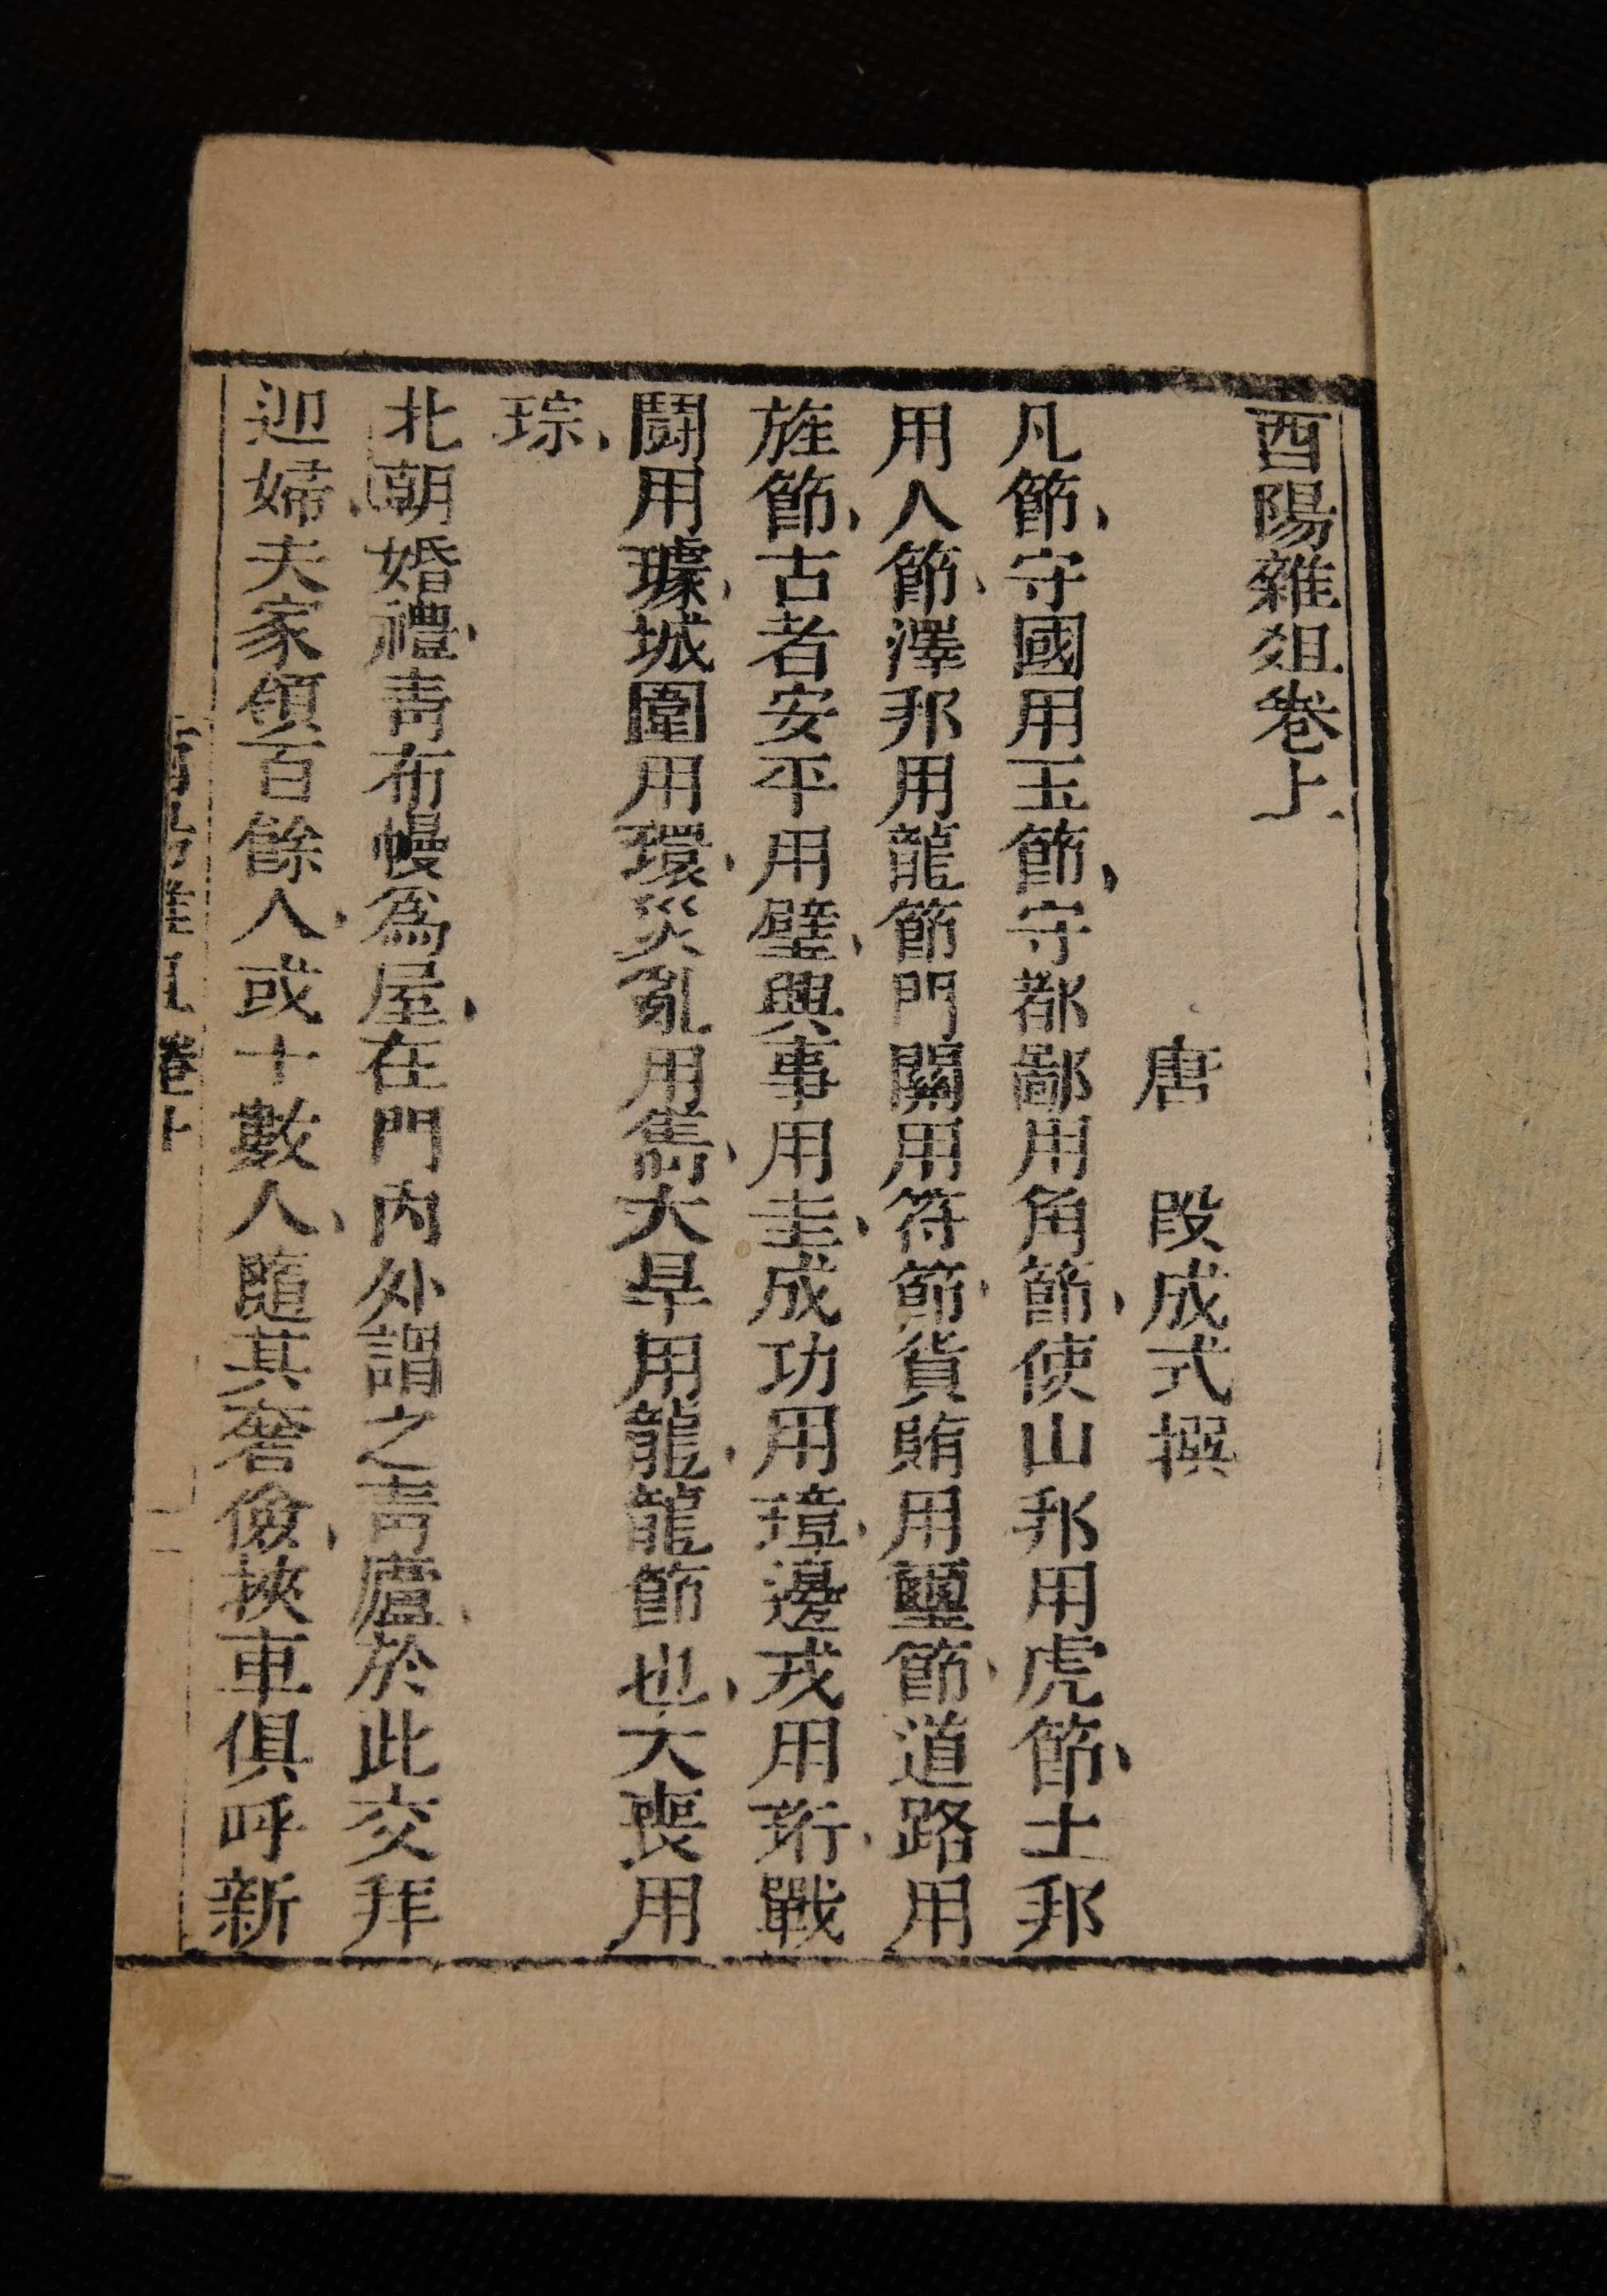 酉陽雜俎卷上
唐　段成式撰
凡節、守國用玉節、守都鄙用角節、使山邦用虎節、土邦
用人節、澤邦用龍節門關用符節、貨賄用璽節、道路用
旌節、古者安平用璧、興事用圭、成功用璋、邊戎用珩、戰
鬪用璩、城圍用環、災亂用雋、大旱用龍、龍節也、大喪用
琮、
北朝婚禮、青布幔爲屋、在門內外謂之青廬、於此交拜
迎婦、夫家領百餘人、或十數人、隨其奢儉、挾車俱呼新
卷上